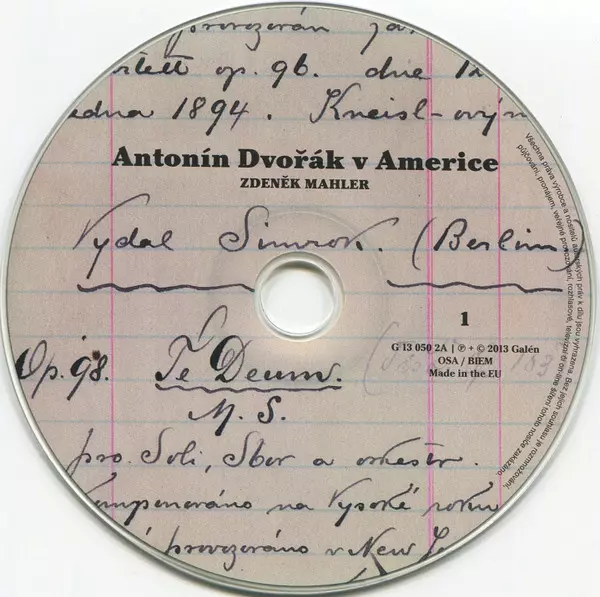 provozován já
rtett op. 96. dne 12
edna 1894. Kneisl-ovým
Antonín Dvořák v Americe
ZDENĚK MAHLER
Vydal Simrok. (Berlin)
1
G 13 050 2A | ℗ + © 2013 Galén
OSA / BIEM
Made in the EU
Op. 98. Te Deum.
M. S.
pro Soli, Sbor a orkestr.
komponováno na Vysoké roku
provozováno v New
Všechna práva výrobce a nositelů autorských práv k dílu jsou vyhrazena. Bez jejich souhlasu je rozmnožování,
půjčování, pronájem, veřejné provozování, rozhlasové, televizní či online šíření tohoto nosiče zakázáno.